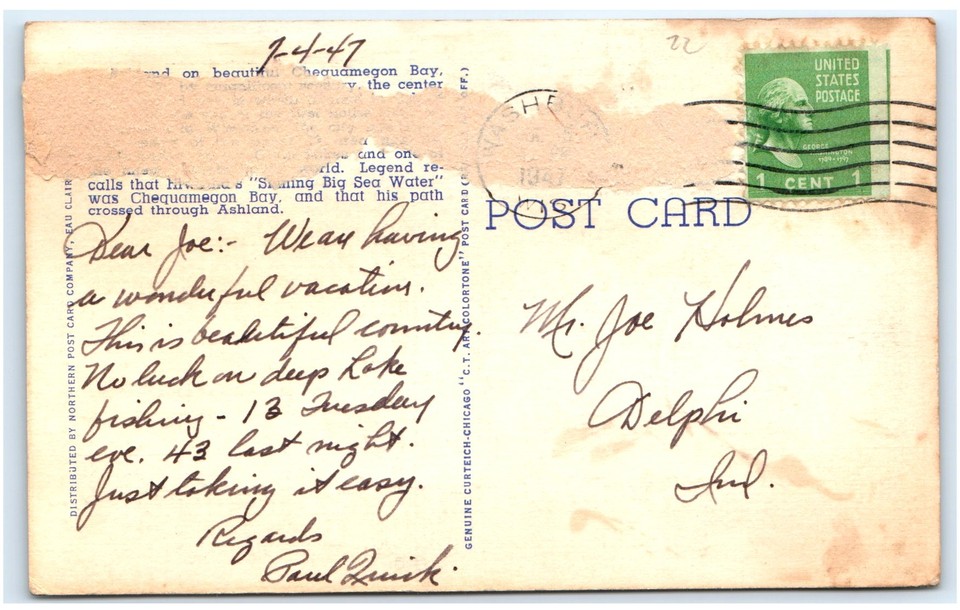 7-4-47
22
on beautiful Chequamegon Bay,
the center
and one
Legend re-
calls that "Shining Big Sea Water"
was Chequamegon Bay, and that his path
crossed through Ashland.
Dear Joe:- We are having
a wonderful vacation.
This is beautiful country.
No luck on deep Lake
fishing - 13 Tuesday
eve. 43 last night.
Just taking it easy.
Regards
Paul
DISTRIBUTED BY NORTHERN POST CARD COMPANY, EAU CLAIR
GENUINE CURTEICH-CHICAGO "C.T. ART COLORTONE" POST CARD
OFF.)
POST CARD
UNITED
STATES
POSTAGE
GEORGE
WASHINGTON
1789-1797
1 CENT 1
Mr. Joe Holmes
Delphi
Ind.